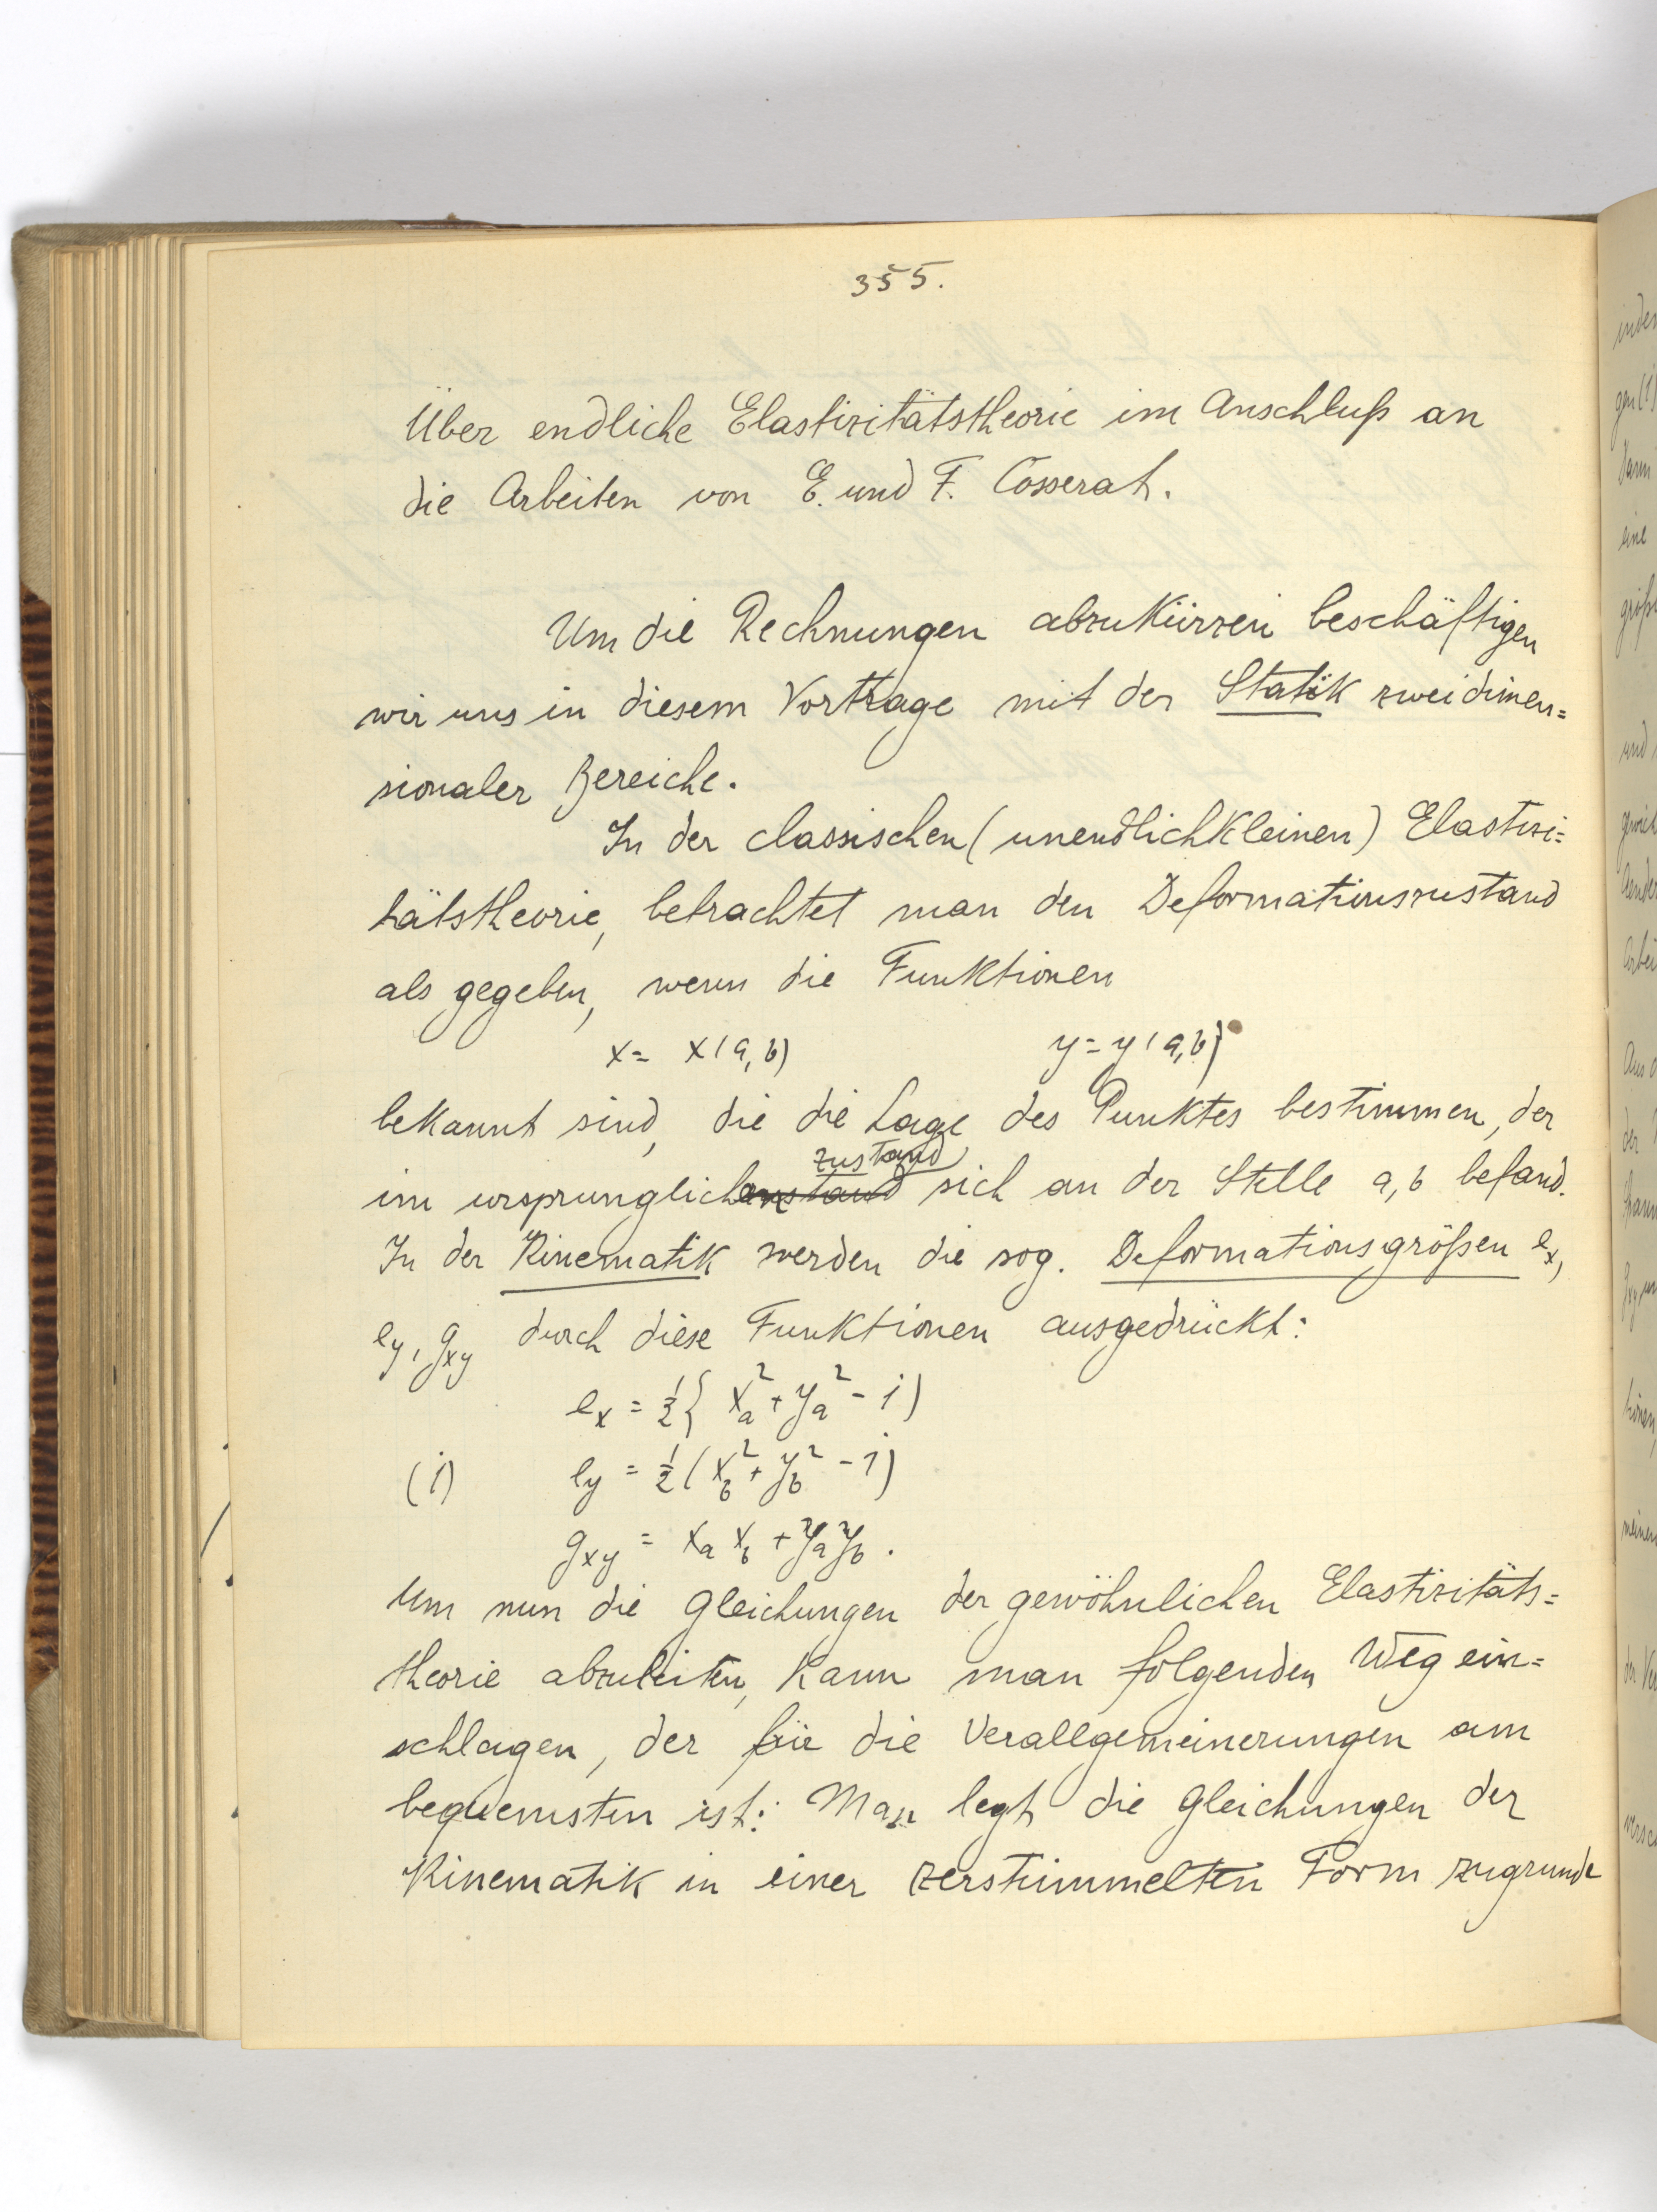 355.
Über endliche Elastizitätstheorie im Anschluß an
die Arbeiten von E. und F. Cosserat.
Um die Rechnungen abzukürzen beschäftigen
wir uns in diesem Vortrage mit der Statik zweidimen=
sionaler Bereiche.
In der classischen (unendlichkleinen) Elastizi=
tätstheorie, betrachtet man den Deformationszustand
als gegeben, wenn die Funktionen
x = x(a, b) y = y(a, b)
bekannt sind, die die Lage des Punktes bestimmen, der
zustand
im ursprunglich sich an der Stelle a, b befand.
In der Kinematik werden die sog. Deformationsgrößen eₓ,
e_y, g_xy durch diese Funktionen ausgedrückt:
e_x = ½{ x_a² + y_a² - 1)
(1) e_y = ½(x_b² + y_b² - 1)
g_xy = x_a x_b + y_a y_b.
Um nun die Gleichungen der gewöhnlichen Elastizitäts=
theorie abzuleiten, kann man folgenden Weg ein=
schlagen, der für die Verallgemeinerungen am
bequemsten ist: Man legt die Gleichungen der
Kinematik in einer zerstümmelten Form zugrunde